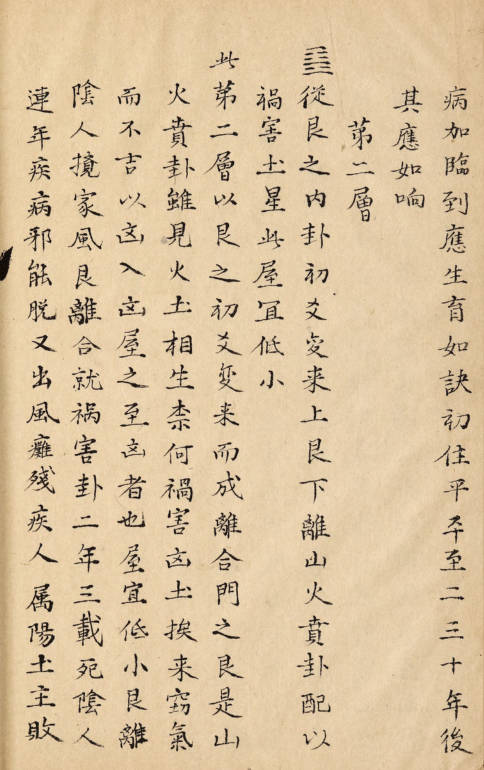 病加臨到應生育如訣初住平平至二三十年後
其應如响
第二層
從艮之内卦初爻变来上艮下離山火賁卦配以
禍害土星此屋宜低小
此第二層以艮之初爻変来而成離合門之艮是山
火賁卦雖見火土相生柰何禍害凶土挨来窃氣
而不吉以凶入凶屋之至凶者也屋宜低小艮離
陰人攪家風艮離合就禍害卦二年三載死陰人
連年疾病邪能脱又出風癱殘疾人属陽土主敗